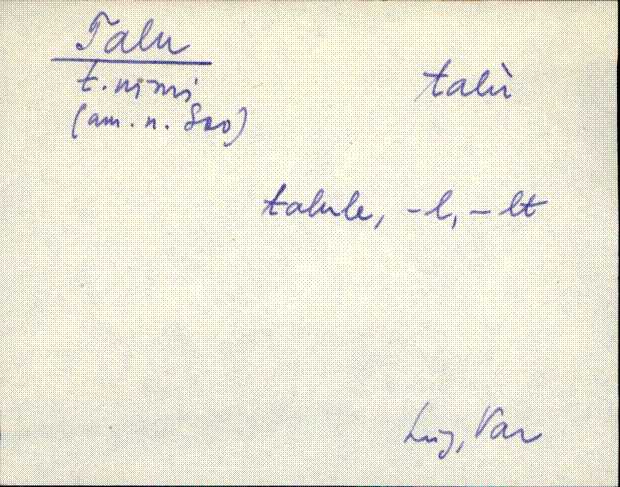 Talu
t. nimi
(am. n. Soo)
talù
talule, -l, -lt
Lüg, Var